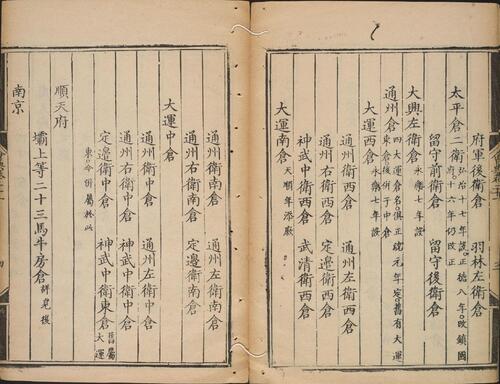 府軍後衛倉 羽林左衛倉
太平倉二衛 弘治十七年設正德八年改鎮國
府十六年仍改正
留守前衛倉 留守後衛倉
大興左衛倉 永樂七年設
通州倉 四大運倉名俱正統元年定舊有大運
東倉後併于中倉
大運西倉 永樂七年設
通州衛西倉 通州左衛西倉
通州右衛西倉 定邊衛西倉
神武中衛西倉 武清衛西倉
大運南倉 天順年添廒
通州衛南倉 通州左衛南倉
通州右衛南倉 定邊衛南倉
大運中倉
通州衛中倉 通州左衛中倉
通州右衛中倉 神武中衛中倉
定邊衛中倉 神武中衛東倉 舊屬大運
東今併屬於此
順天府
壩上等二十三馬牛房倉 詳見後
南京